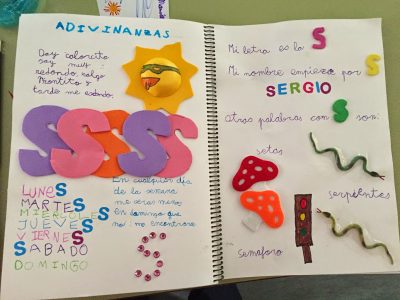 ADIVINANZAS
Doy calorcito
soy muy
redondo, salgo
prontito y
tarde me escondo.
SSSS
LUNES
MARTES
MIERCOLES
JUEVES
VIERNES
SABADO
DOMINGO
En cualquier día
de la semana
me verás menos
en domingo que
no me encontrarás
S
Mi letra es la S
Mi nombre empieza por S
SERGIO
Otras palabras con S son:
setas
serpientes
Semáforo